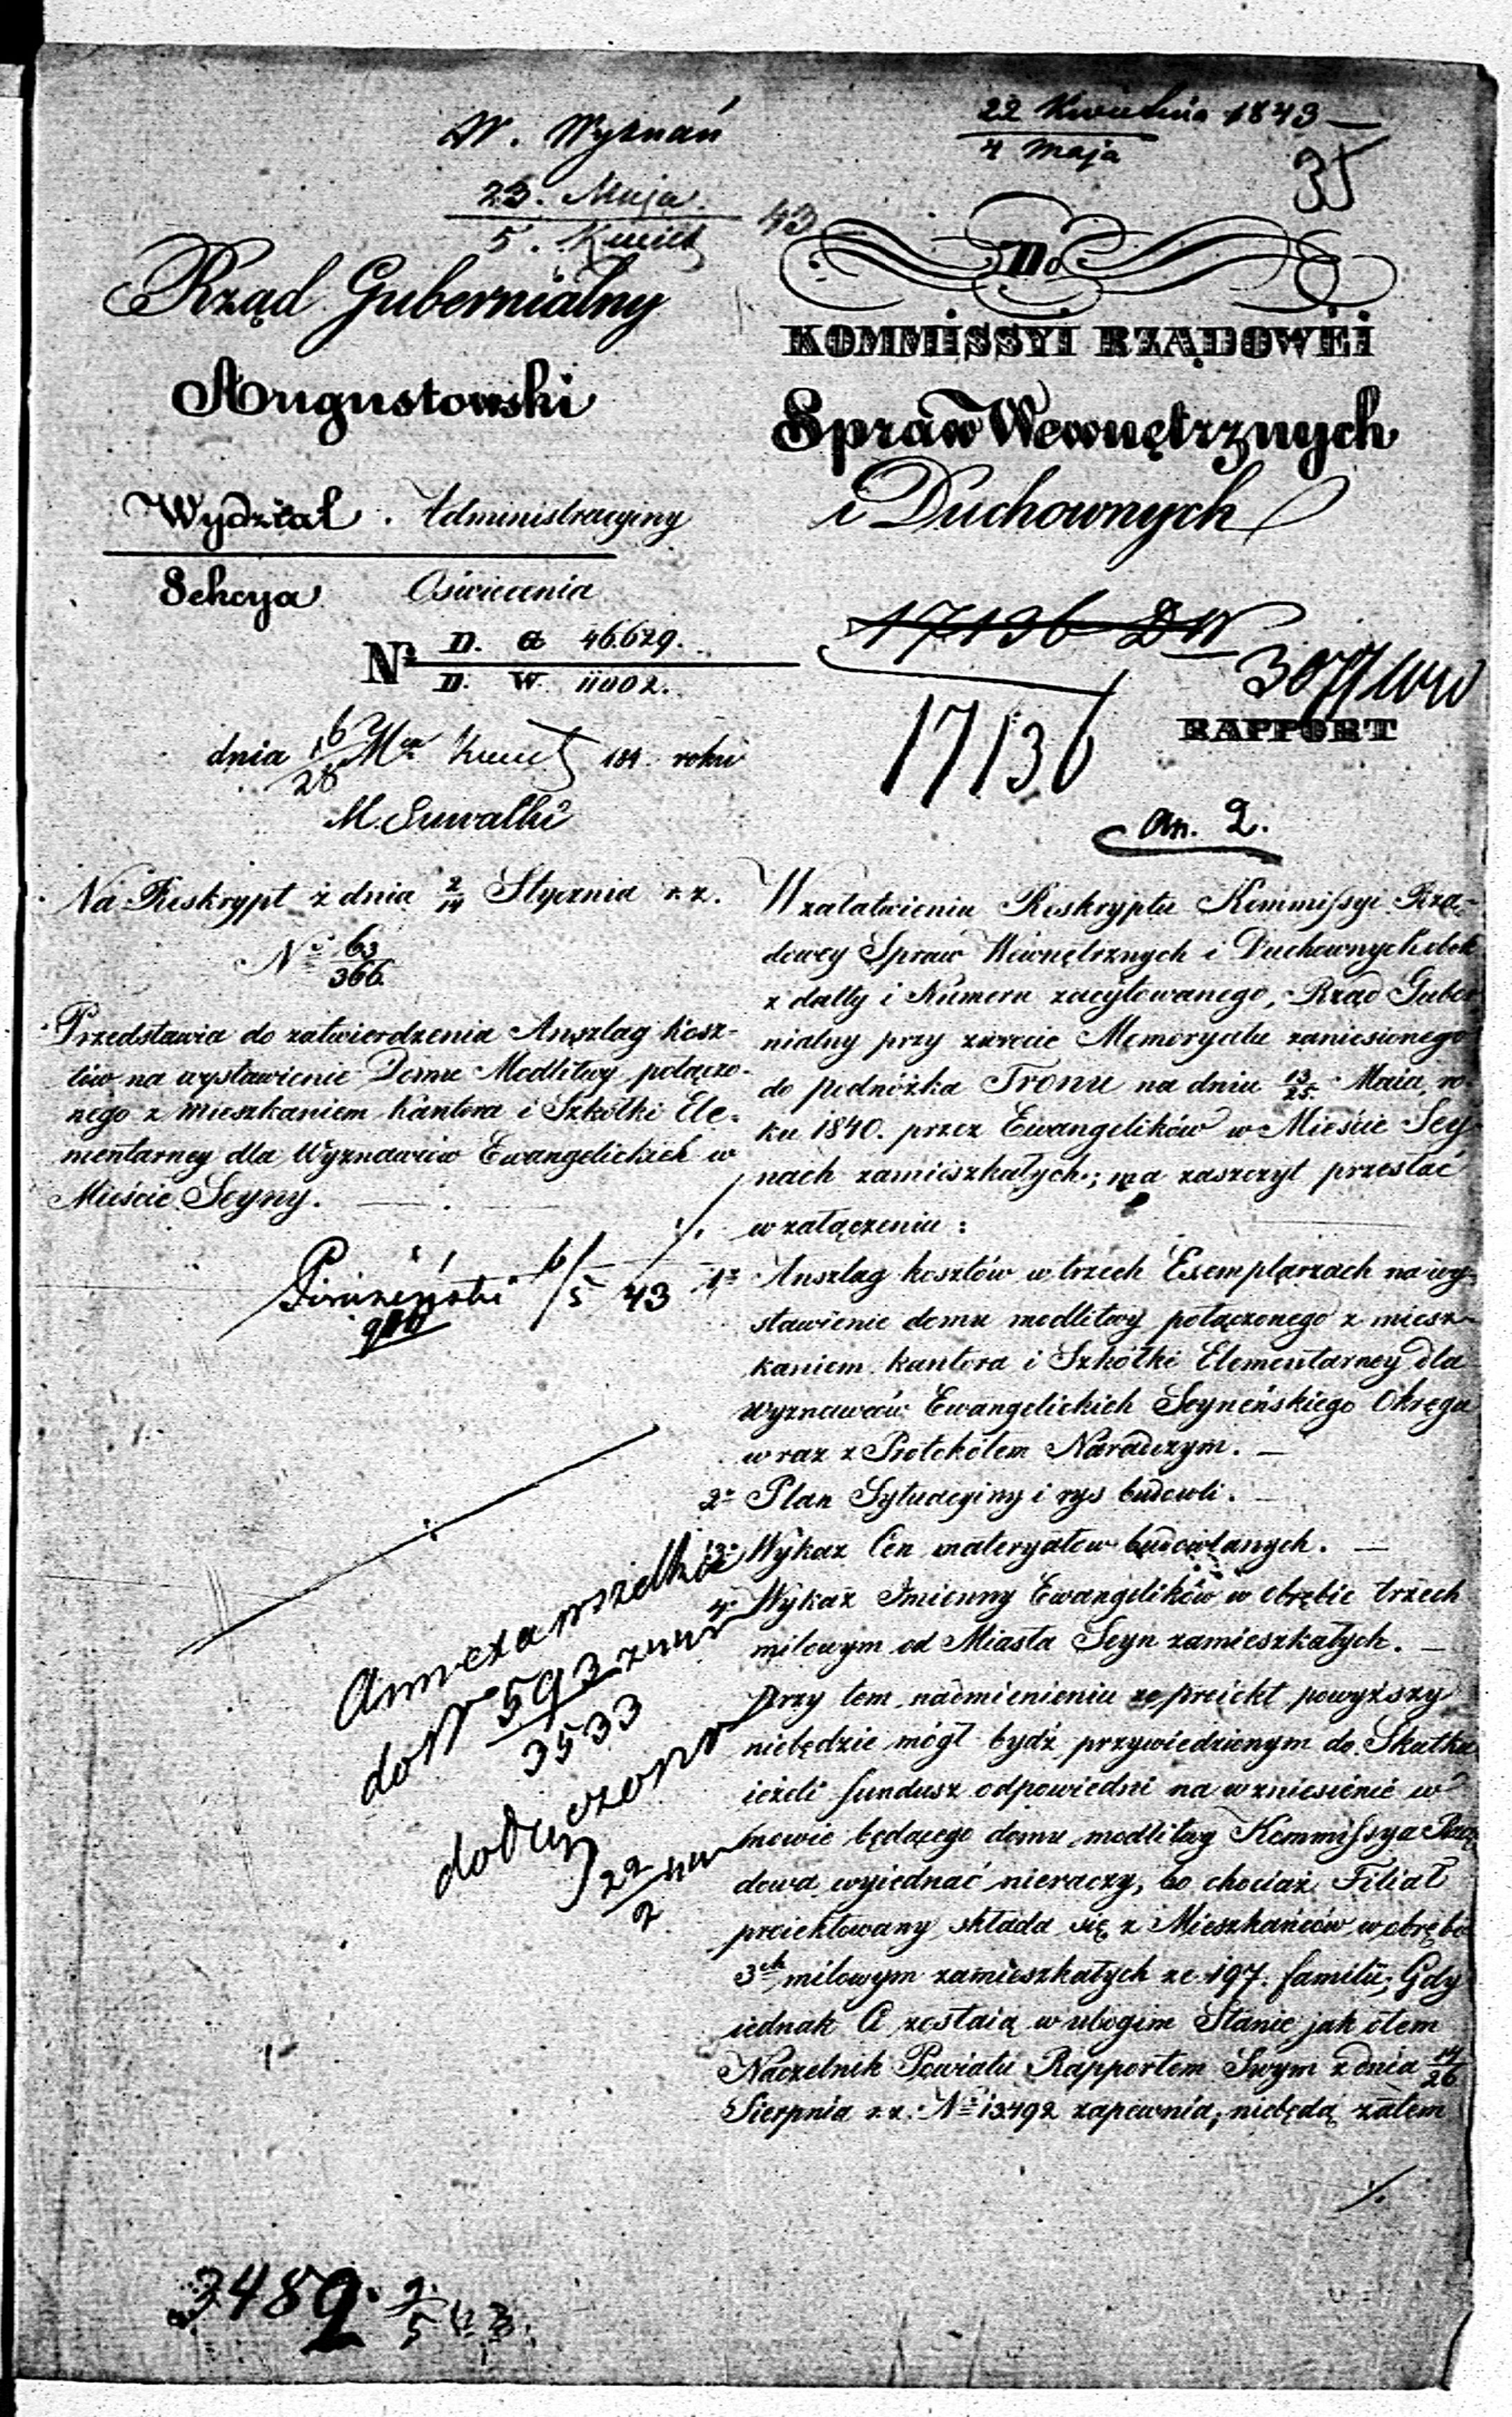 W. Wyznań
22 Kwietnia 1843
4 Maja
35
23. Maja.
5.
43
Do
Rząd Gubernialny
KOMMISSYI RZĄDOWEI
Augustowski
Spraw Wewnętrznych
i Duchownych
Wydział Administracyiny
Sekcya Oświecenia
17136 DW
Nº D. G 46.629.
D. W. 11002.
17136
RAPPORT
dnia 16/28 184 roku
M. Suwałki
an. 2.
Na Reskrypt z dnia 2/14 Stycznia r. z.
Nº 63
366.
Przedstawia do zatwierdzenia Anszlag kosz-
tów na wystawienie Domu Modlitwy połączo-
nego z mieszkaniem kantora i Szkółki Ele-
mentarney dla Wyznawców Ewangelickich w
Mieście Seyny.
6/5 43
W załatwieniu Reskryptu Kommissyi Rzą-
dowey Spraw Wewnętrznych i Duchownych obok
z datty i Numeru zacytowanego, Rząd Guber
nialny przy zwrocie Memoryału zaniesionego
do podnóżka Tronu na dniu 13/25 Maia ro-
ku 1840. przez Ewangelików w Mieście Sey
nach zamieszkałych; ma zaszczyt przesłać
w załączeniu:
1º Anszlag kosztów w trzech Exemplarzach na wy-
stawienie domu modlitwy połączonego z miesz-
kaniem kantora i Szkółki Elementarney dla
Wyznawców Ewangelickich Seyneńskiego Okręgu
wraz z Protokółem Naradczym.
2º Plan Sytuacyiny i rys budowli.
3º Wykaz Cen materyałow budowlanych.
4º Wykaz Imienny Ewangelików w obrębie trzech
milowym od Miasta Seyn zamieszkałych.
Przy tem nadmienieniu że proiekt powyższy
niebędzie mógł bydź przywiedzionym do Skutku
ieżeli fundusz odpowiedni na wzniesienie w
mowie będącego domu modlitwy Kommissya Rzą
dowa wyiednać nieraczy, bo chociaż Filiał
proiektowany składa się z Mieszkańców w obrębie
3ch milowym zamieszkałych ze 197. familii; Gdy
iednak Ci zostaią w ubogim Stanie jak o tem
Naczelnik Powiatu Rapportem Swym z dnia 14/26
Sierpnia r. z. Nº 13492 zapewnia; niebędą zatem
./.
Annexa wszelkie
do Nº 593
3533
dołączono
22
2
3482. 9/5 43.